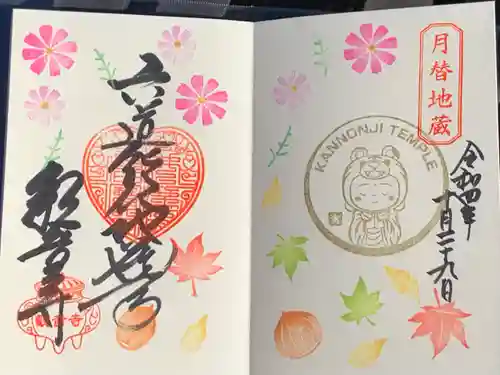 月替地蔵
令和四年
十月二十九日
KANNONJI TEMPLE
六道能化地蔵尊
観音寺
観音寺